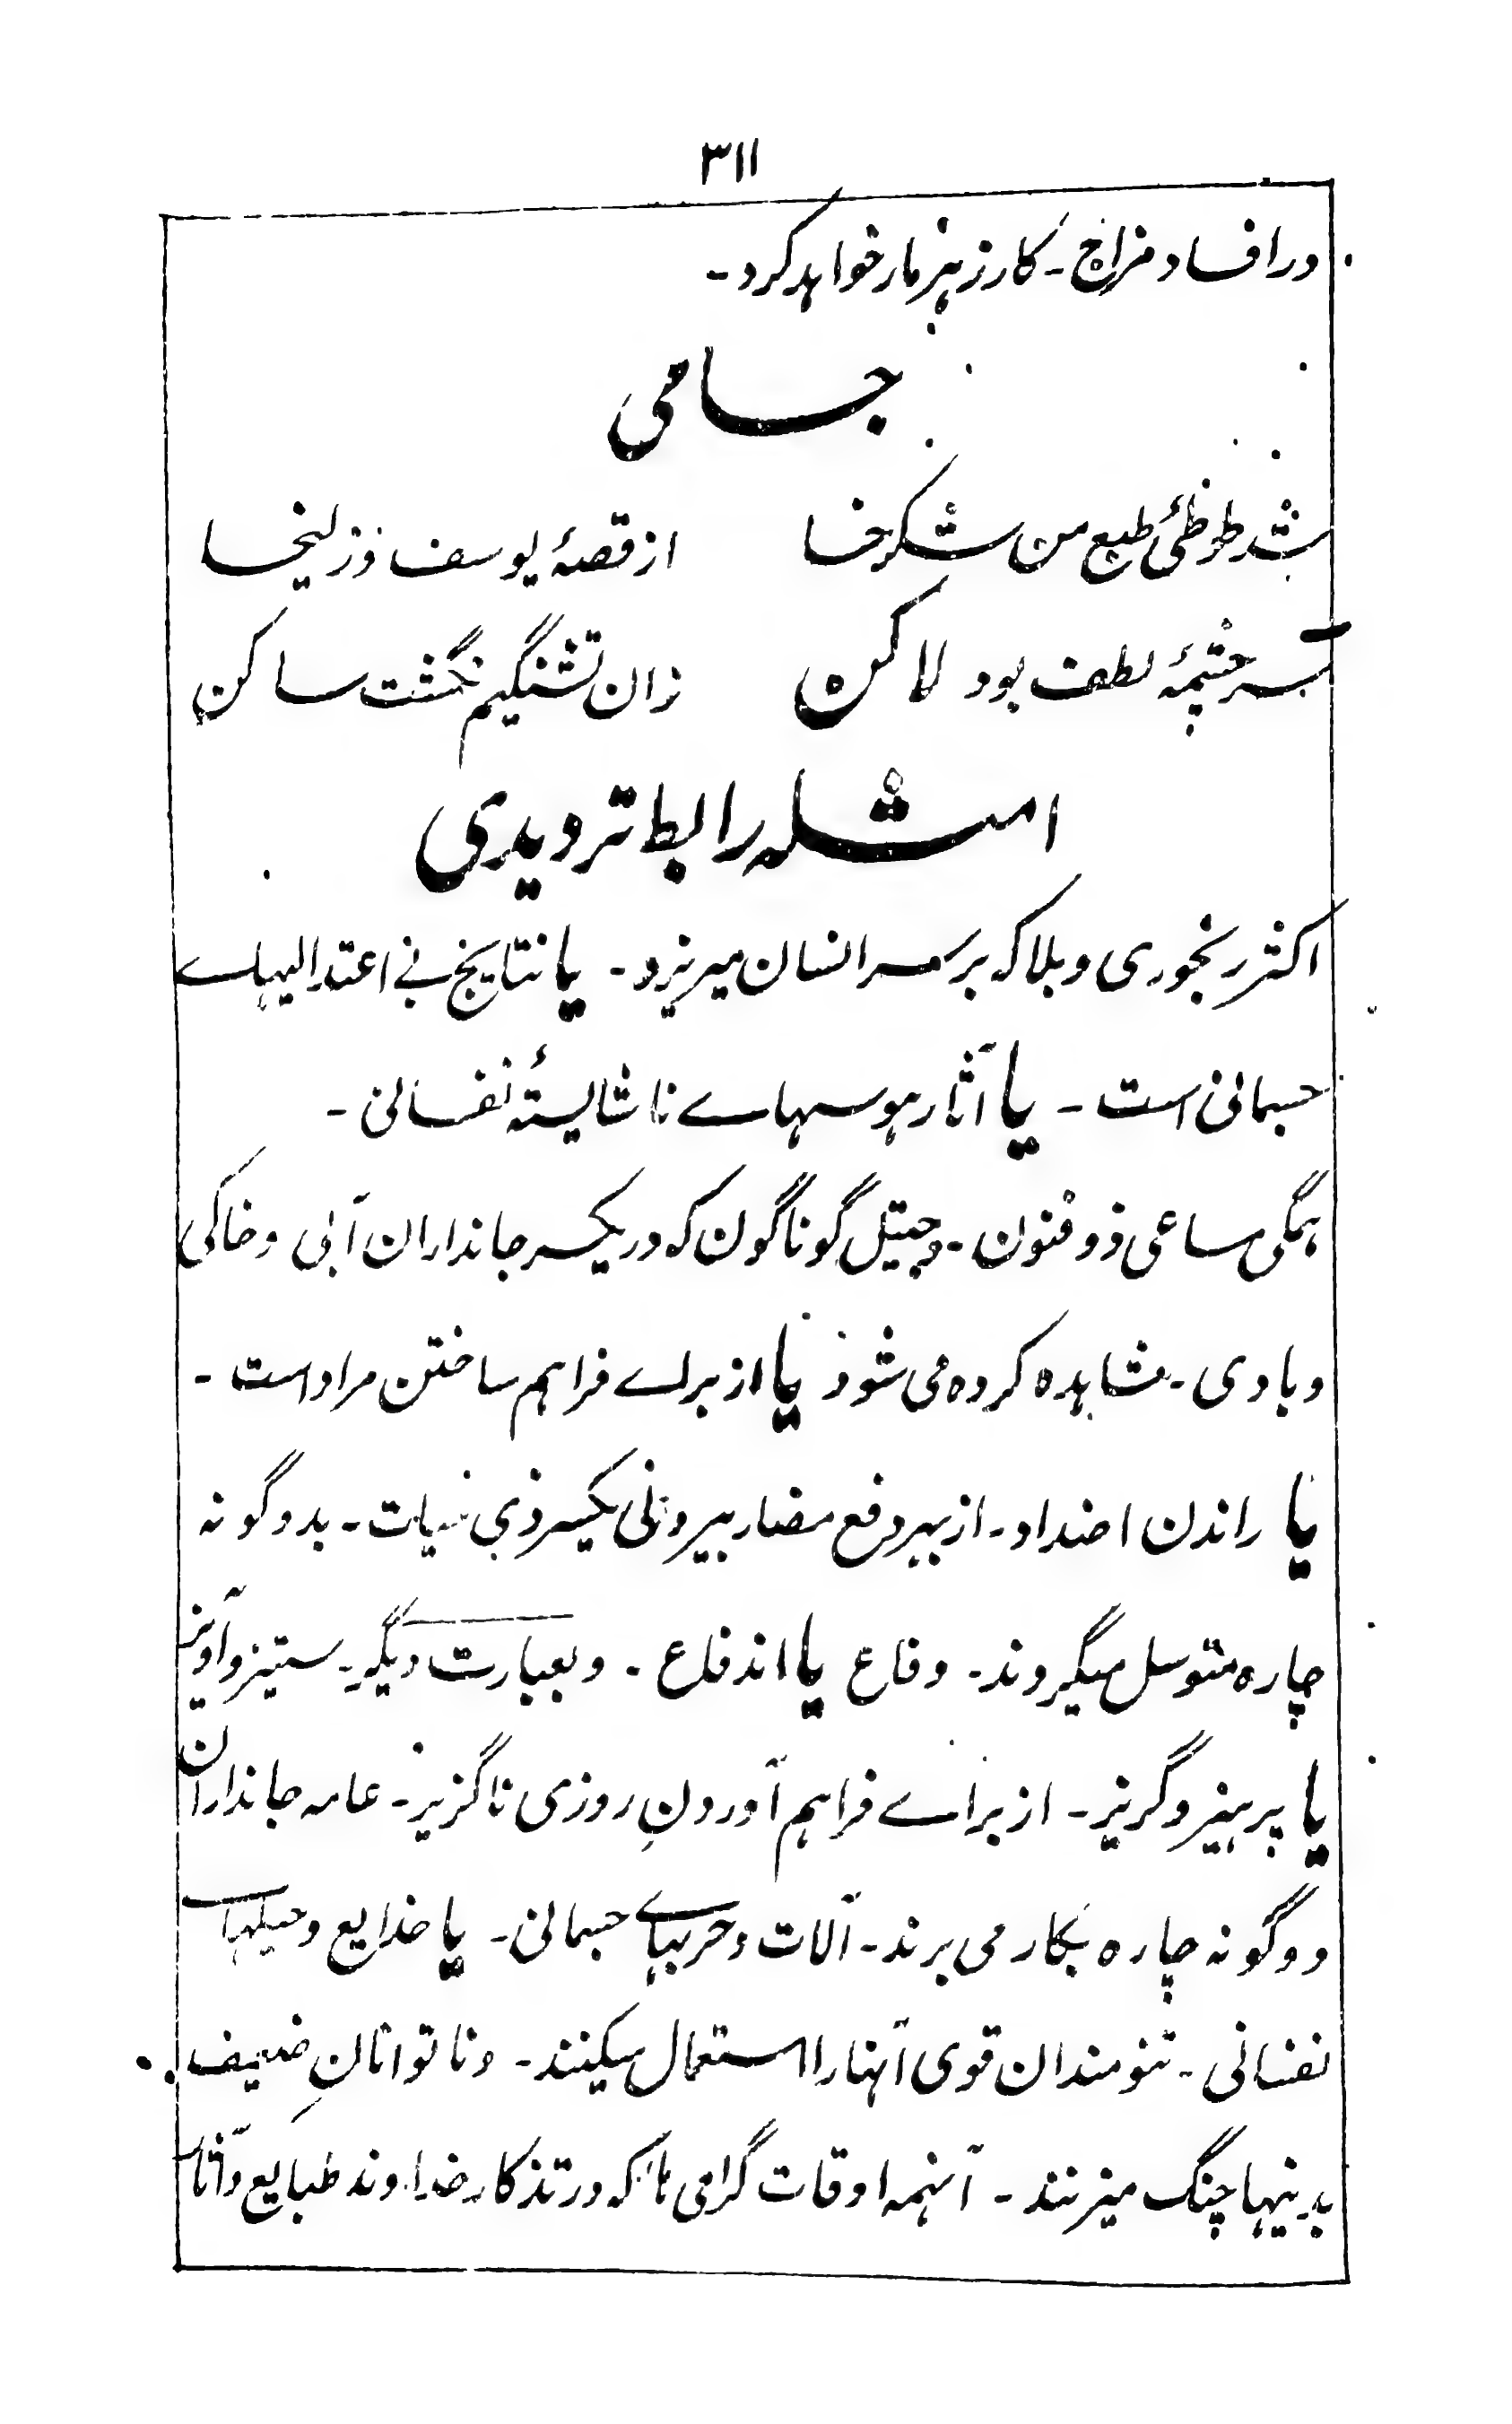 ۳۱۱
در افساد مزاج - کار زهر مار خواهد کرد -
جامی
شد طوطئ طبع من شکرخا    از قصهٔ یوسف و زلیخا
سرچشمهٔ لطف بود لاکن    زان تشنگیم نگشت ساکن
امثله رابط تردیدی
اکثر رنجوری و بلا که بر سر انسان میریزد - یا نتایج بے اعتدالیهاے
جسمانی است - یا آثار هوسهاے ناشایستهٔ نفسانی -
همگی مساعی ذو فنون - و حیل گوناگون که در یکسر جانداران آبی و خاکی
و بادی - مشاهده کرده می شود یا از براے فراهم ساختن مراد است -
یا راندن اضداد - از بهر دفع مضار بیرونی یکسر ذی حیات - بدو گونه
چاره متوسل میگردند - دفاع یا اندفاع - و بعبارت دیگر - ستیز و آویز
یا پرهیز و گریز - از براے فراهم آوردنِ روزی ناگزیز - عامه جانداران
دو گونه چاره بکار می برند - آلات و حربهاے جسمانی - یا خدایع و حیلهاے
نفسانی - تنومندان قوی آنهارا استعمال میکنند - و ناتوانانِ ضعیف
بدینها چنگ میزنند - آنهمه اوقات گرامی ما که در تذکار خداوند طبایع و آثار